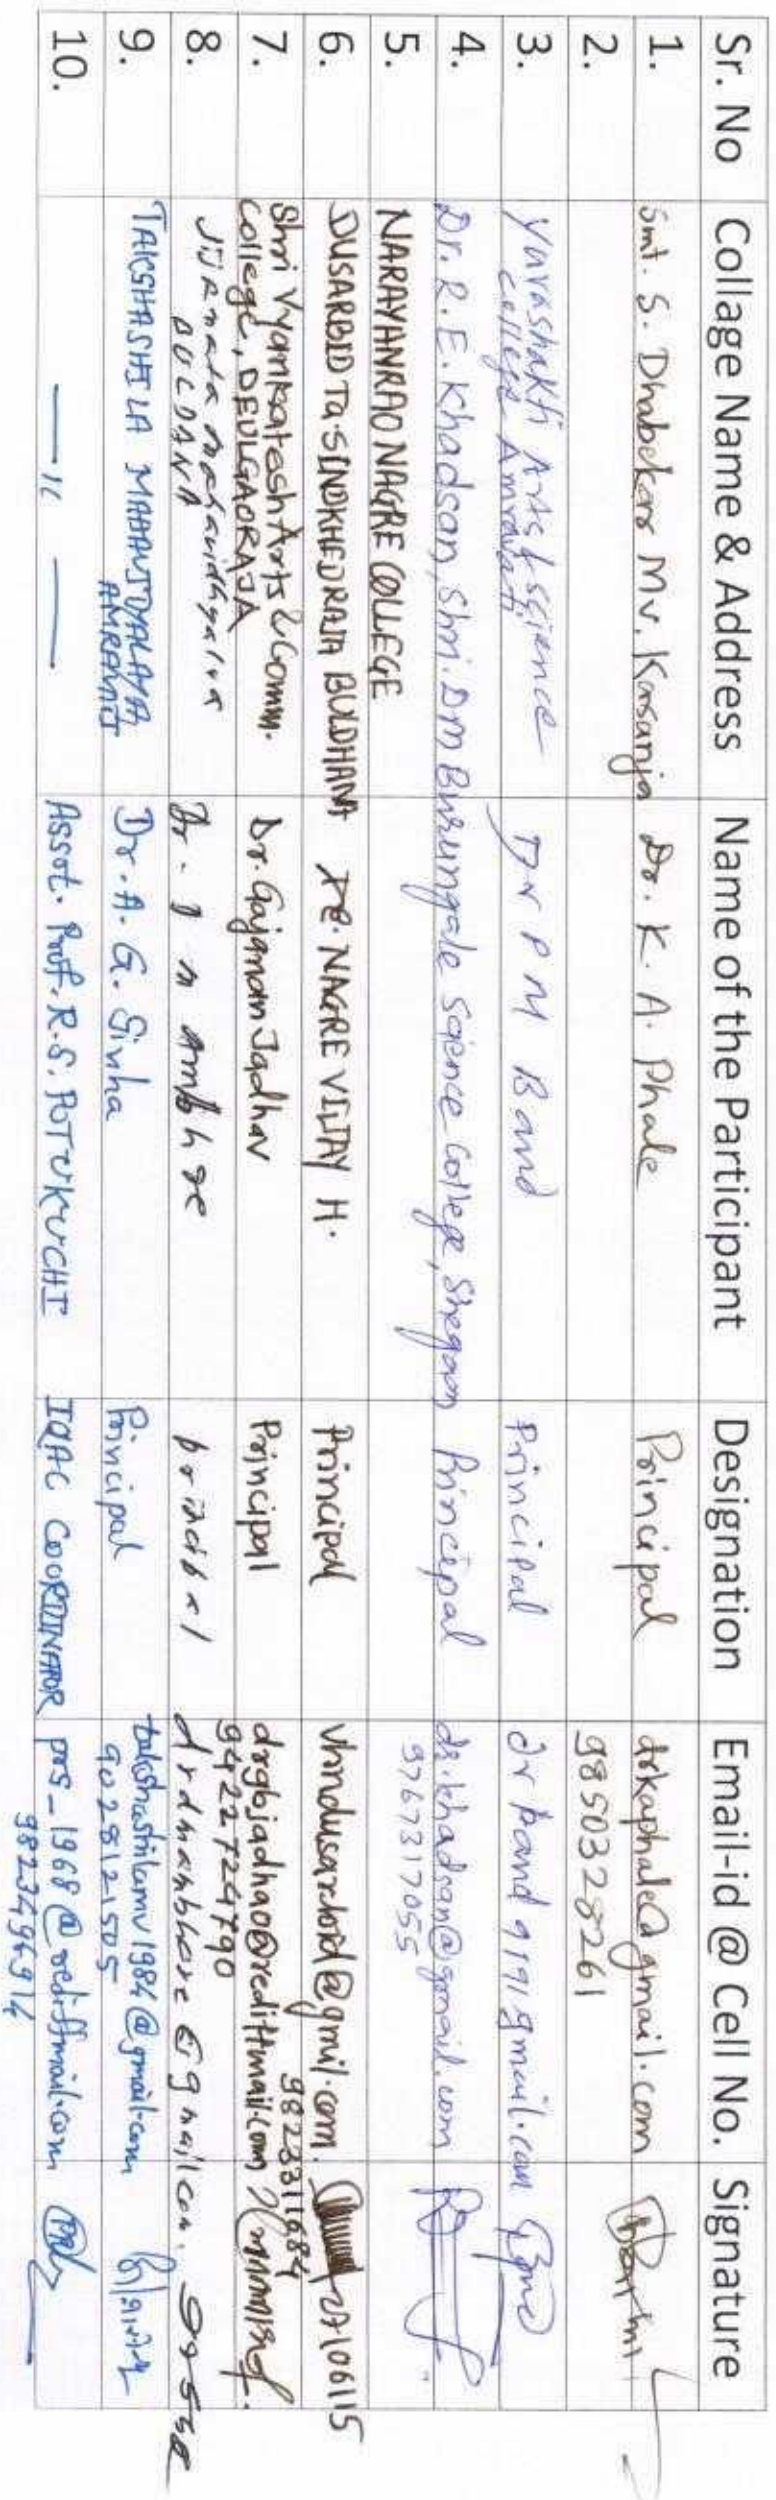 Sr. No Collage Name & Address Name of the Participant Designation Email-id @ Cell No. Signature
1. Smt. S. Dhabekar Mv. Karanja Dr. K. A. Phale Principal drkaphale@gmail.com
2. 9850328261
3. Yuvashakti Arts & Science Dr P M Band Principal drband9191gmail.com
College Amravati
4. Dr. R. E. Khadsan, Shri. DM Burungale Science College, Shegaon Principal dr.khadsan@gmail.com
9767317055
5. NARAYANRAO NAGRE COLLEGE
6. DUSARBID TA. SINDKHEDRAJA BULDHANA DR. NAGRE VIJAY H. Principal vhndusarbid@gmil.com. 27/06/15
9823311684
7. Shri Vyankatesh Arts & Comm. Dr. Gajanan Jadhav Principal drgbjadhao@rediffmail.com
College, DEULGAORAJA 9422724790
8. Jijamata mahavidhyalya Dr. D m ambhre principal drdmambhore@gmailcom.
BULDANA
9. TAKSHASHILA MAHAVIDYALAYA Dr. A. G. Sinha Principal takshashilamv1984@gmail.com
AMRAVATI 9028121505
10. — 11 — Asst. Prof. R. S. POTUKUCHI IQAC COORDINATOR prs_1968@rediffmail.com
9823496914